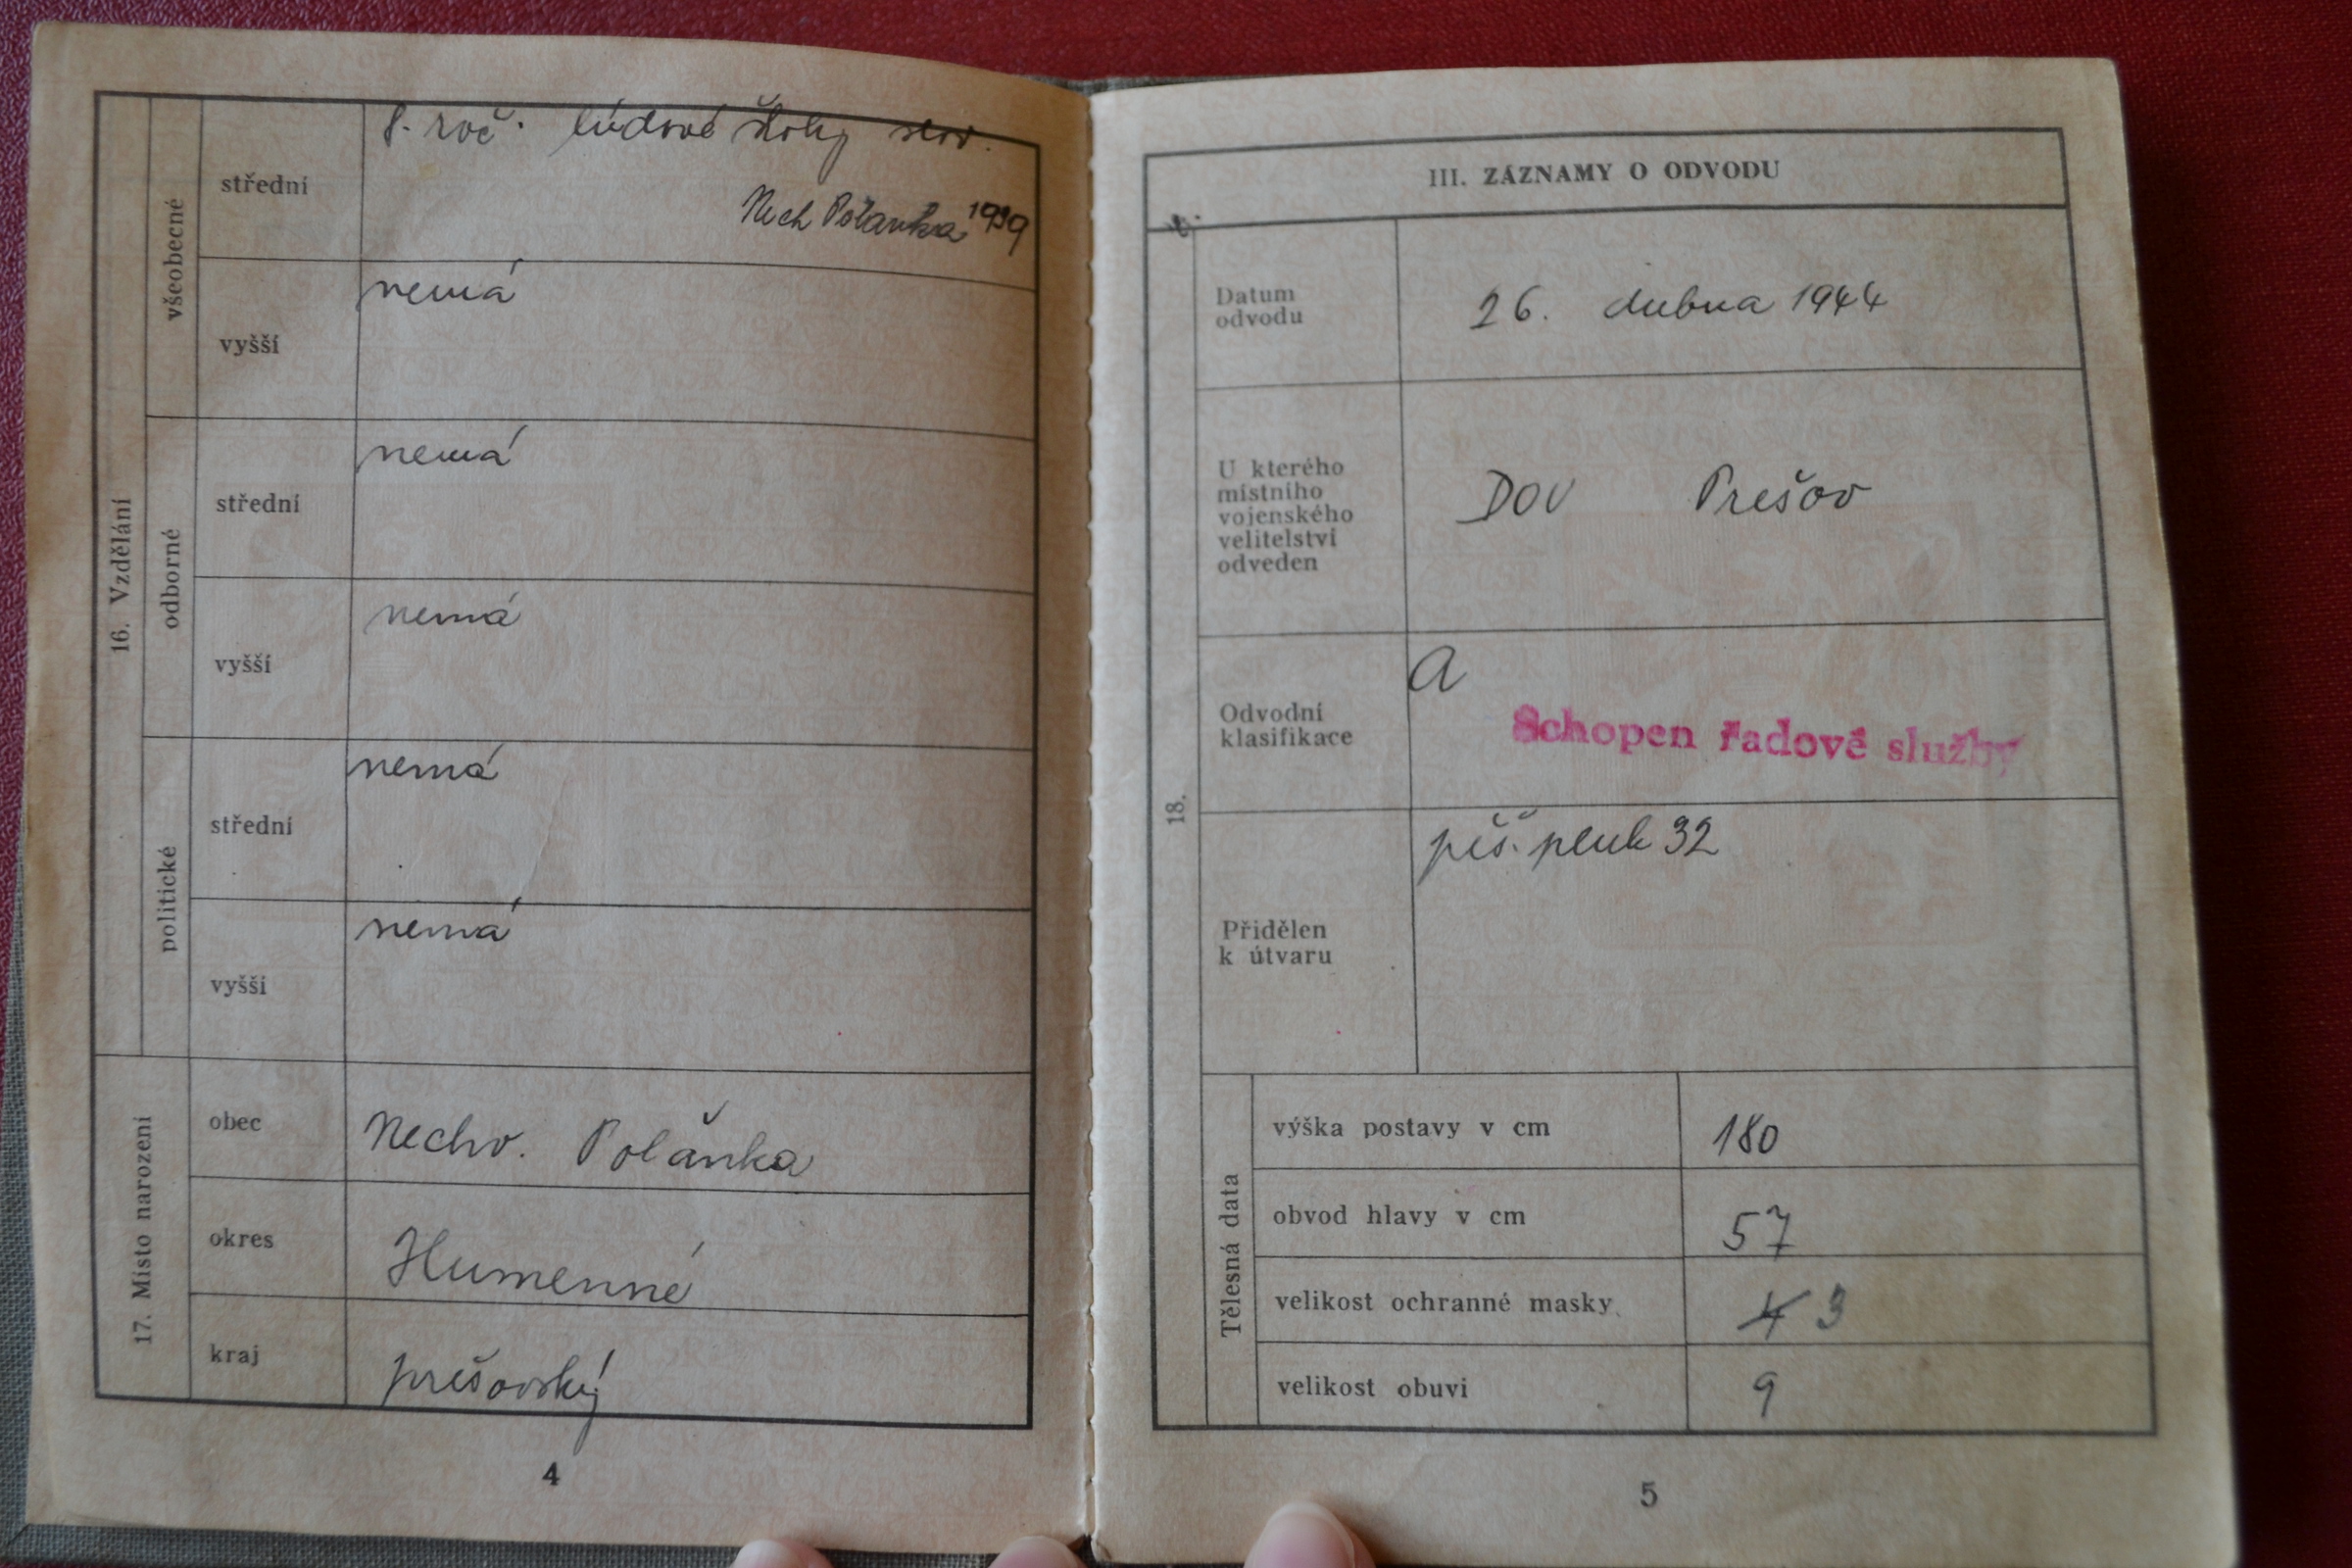 16. Vzdělání
všeobecné
střední
8. roč. lúdové školy slov.
Nech Polanka 1939
vyšší
nemá
odborné
střední
nemá
vyšší
nemá
politické
střední
nemá
vyšší
nemá
17. Místo narození
obec
Nechv. Polanka
okres
Humenné
kraj
prešovský
4
III. ZÁZNAMY O ODVODU
18.
Datum
odvodu
26. dubna 1944
U kterého
místního
vojenského
velitelství
odveden
DOV Prešov
Odvodní
klasifikace
A
Schopen řadové služby
Přidělen
k útvaru
pěš. pluk 32
Tělesná data
výška postavy v cm
180
obvod hlavy v cm
57
velikost ochranné masky
4 3
velikost obuvi
9
5